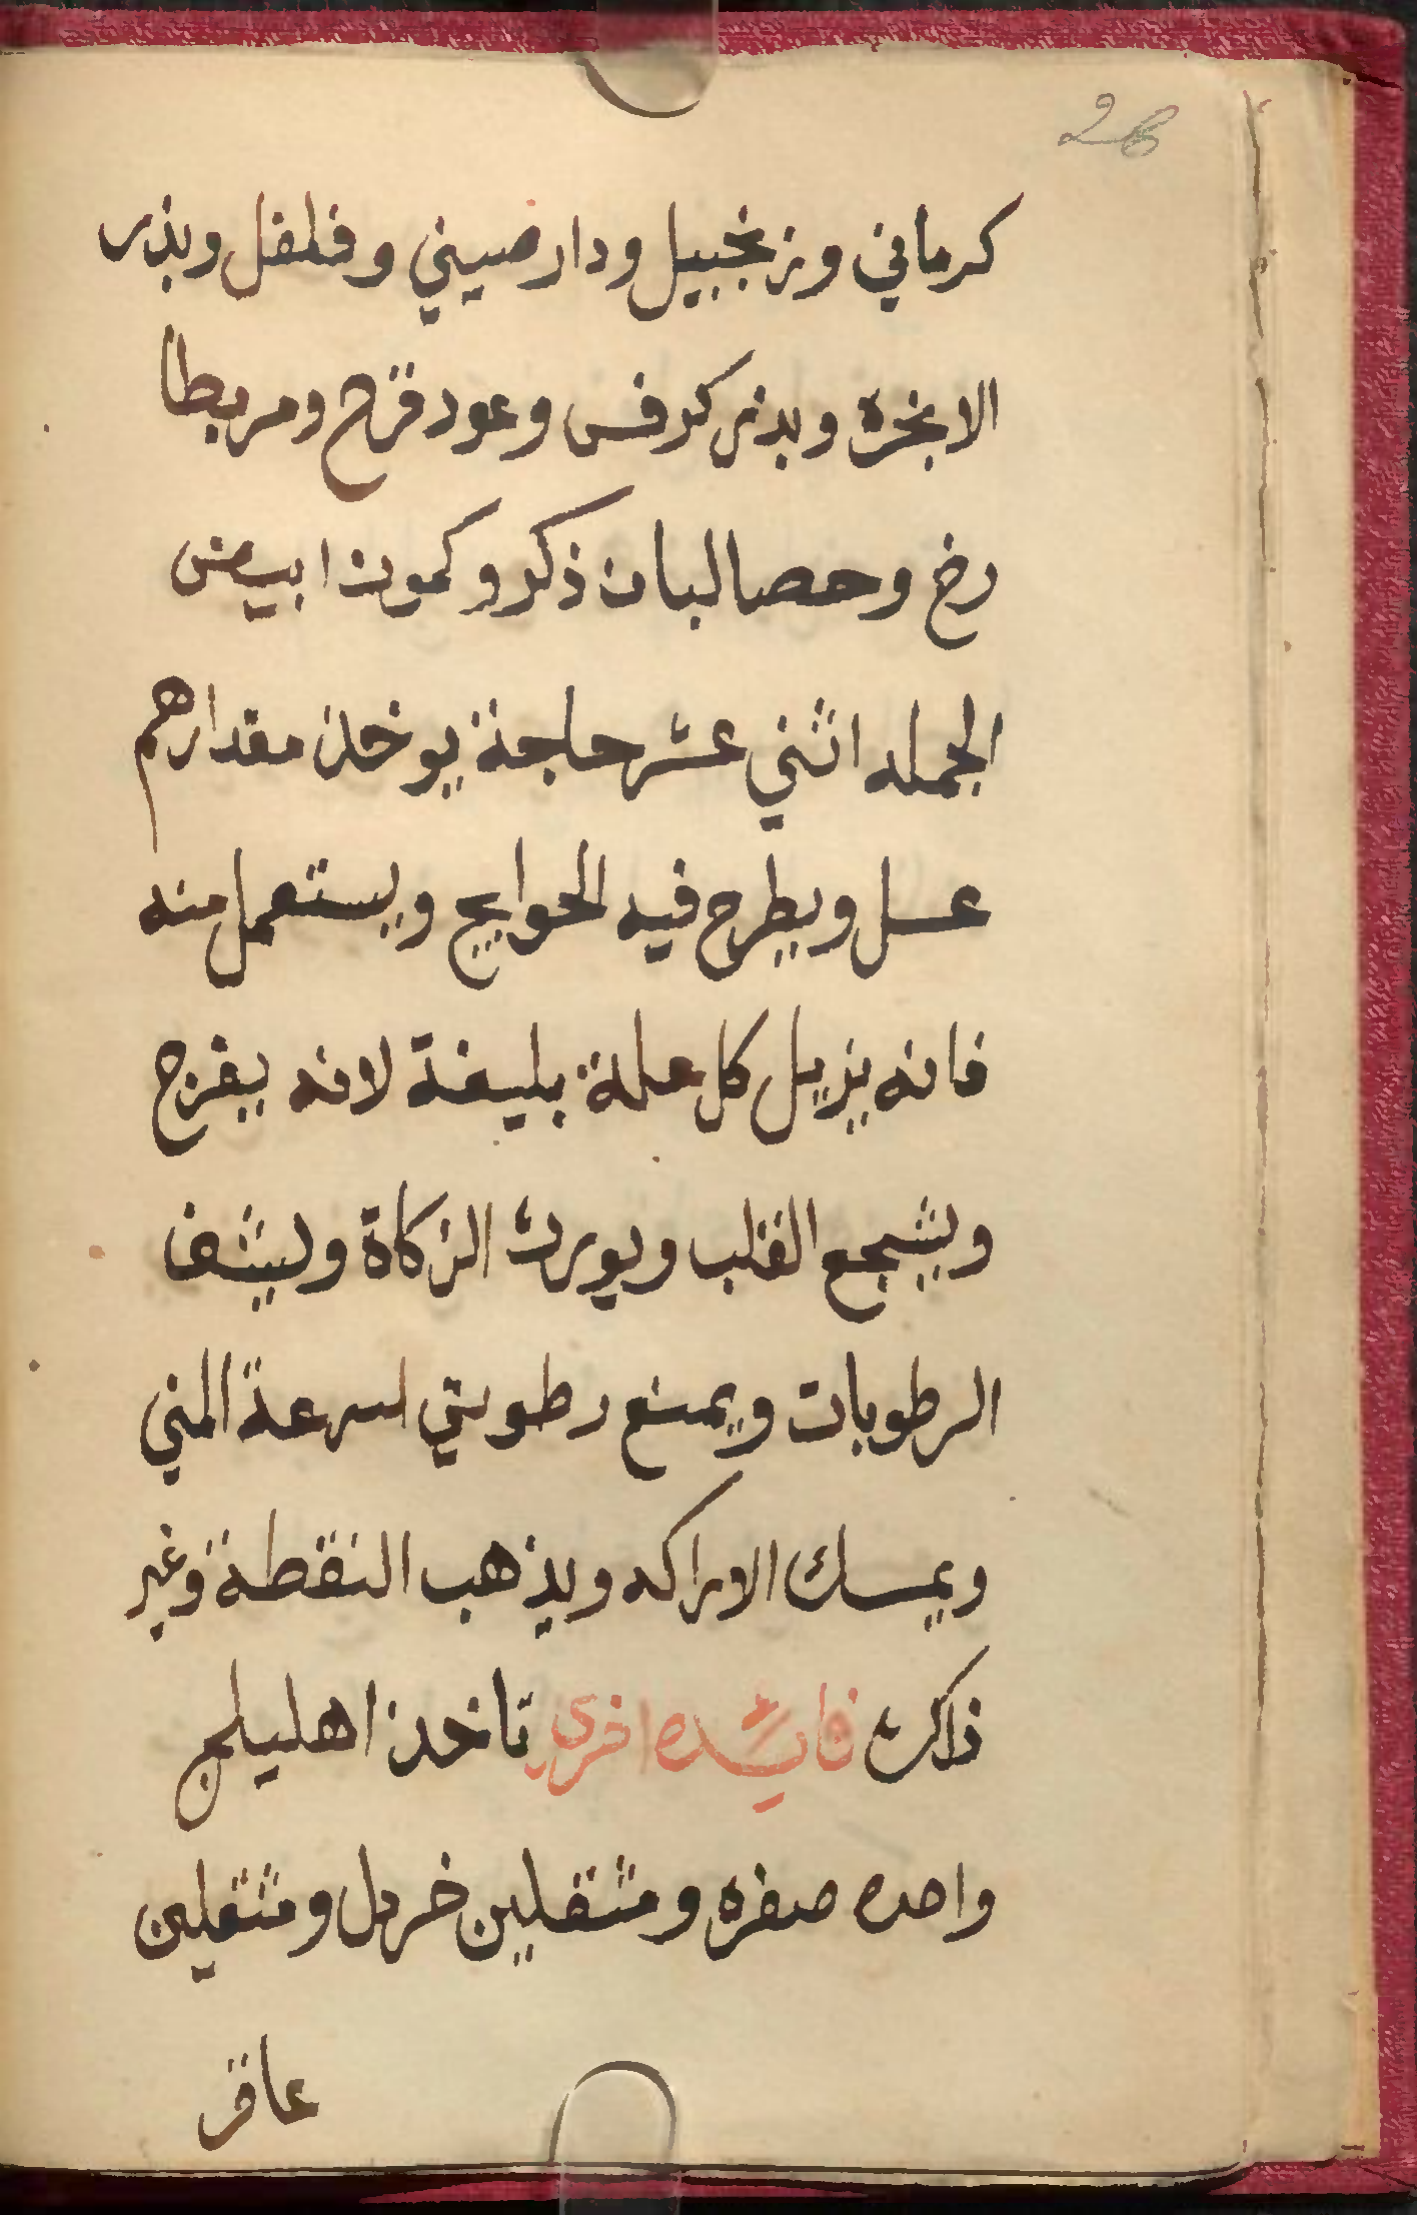 26
كرماني وزنجبيل ودارصيني وفلفل وبذر
الابخره وبذر كرفس وعود قرح ومربطا
رخ وحصالبان ذكر وكمون ابيض
الجمله اثني عشر حاجة يوخذ مقدارهم
عسل ويطرح فيه الحوايج ويستعمل منه
فانه يزيل كل علة بليغة لانه يفرح
ويشجع القلب ويورث الزكاة وينشف
الرطوبات ويمنع رطوبتي لسرعة المني
ويمسك الاراكه ويذهب النقطة وغير
ذاك فايده اخري تاخذ اهليلج
واحده صفره ومثقلين خردل ومثقلين
عاقر